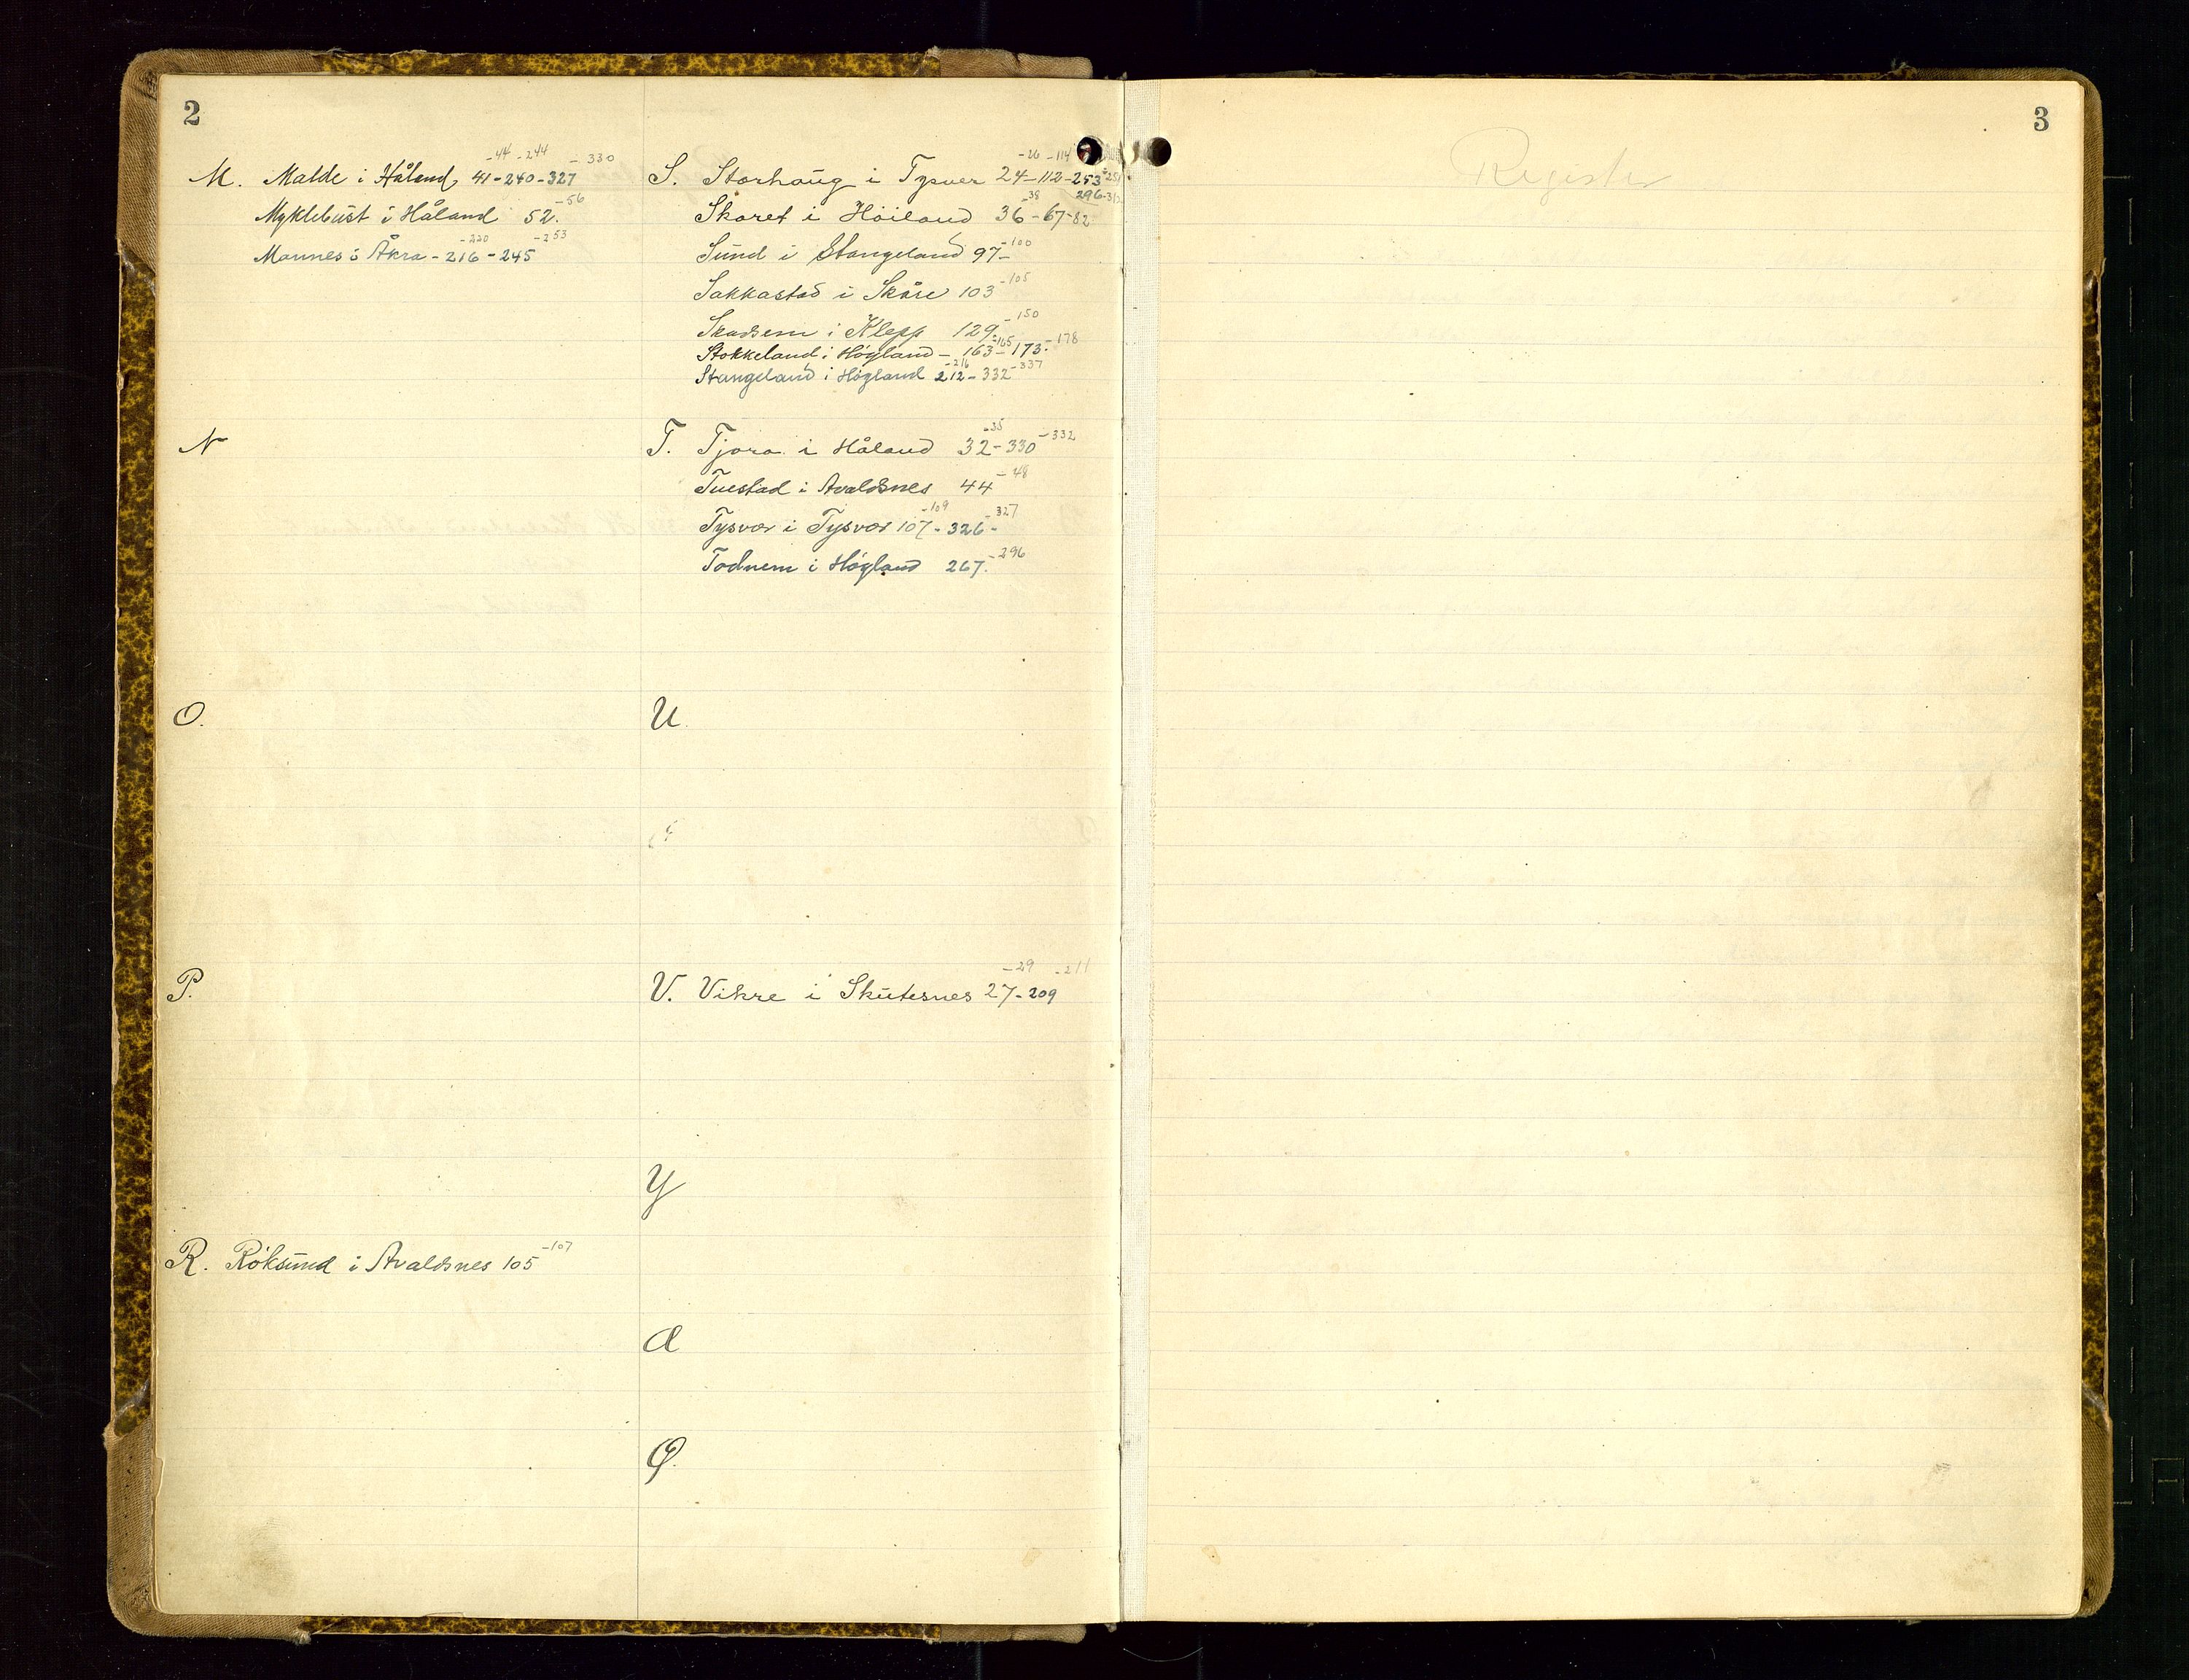 2
-44 -244 -330
M. Malde i Håland 41-240-327
-56
Myklebust i Håland 52.
-220 -253
Mannes i Åkra -216-245
N
O.
P.
-107
R. Röksund i Avaldsnes 105
-26 -114
S. Storhaug i Tysver 24-112-253
-38 296
Skaret i Höiland 36-67-82
-100
Sund i Stangeland 97-
-105
Sakkastad i Skåre 103
-150
Skadsem i Klepp 129.
-165 -178
Stokkeland i Høyland - 163-173.
-216 -337
Stangeland i Høgland 212-332
-35 -332
T. Tjora i Håland 32-330
-48
Tuestad i Avaldsnes 44
-109 327
Tysvær i Tysvær 107-326-
-296
Todnem i Høyland 267.
U.
-29 -211
V. Vikre i Skutesnes 27-209
Y
Æ
Ø.
3
Register